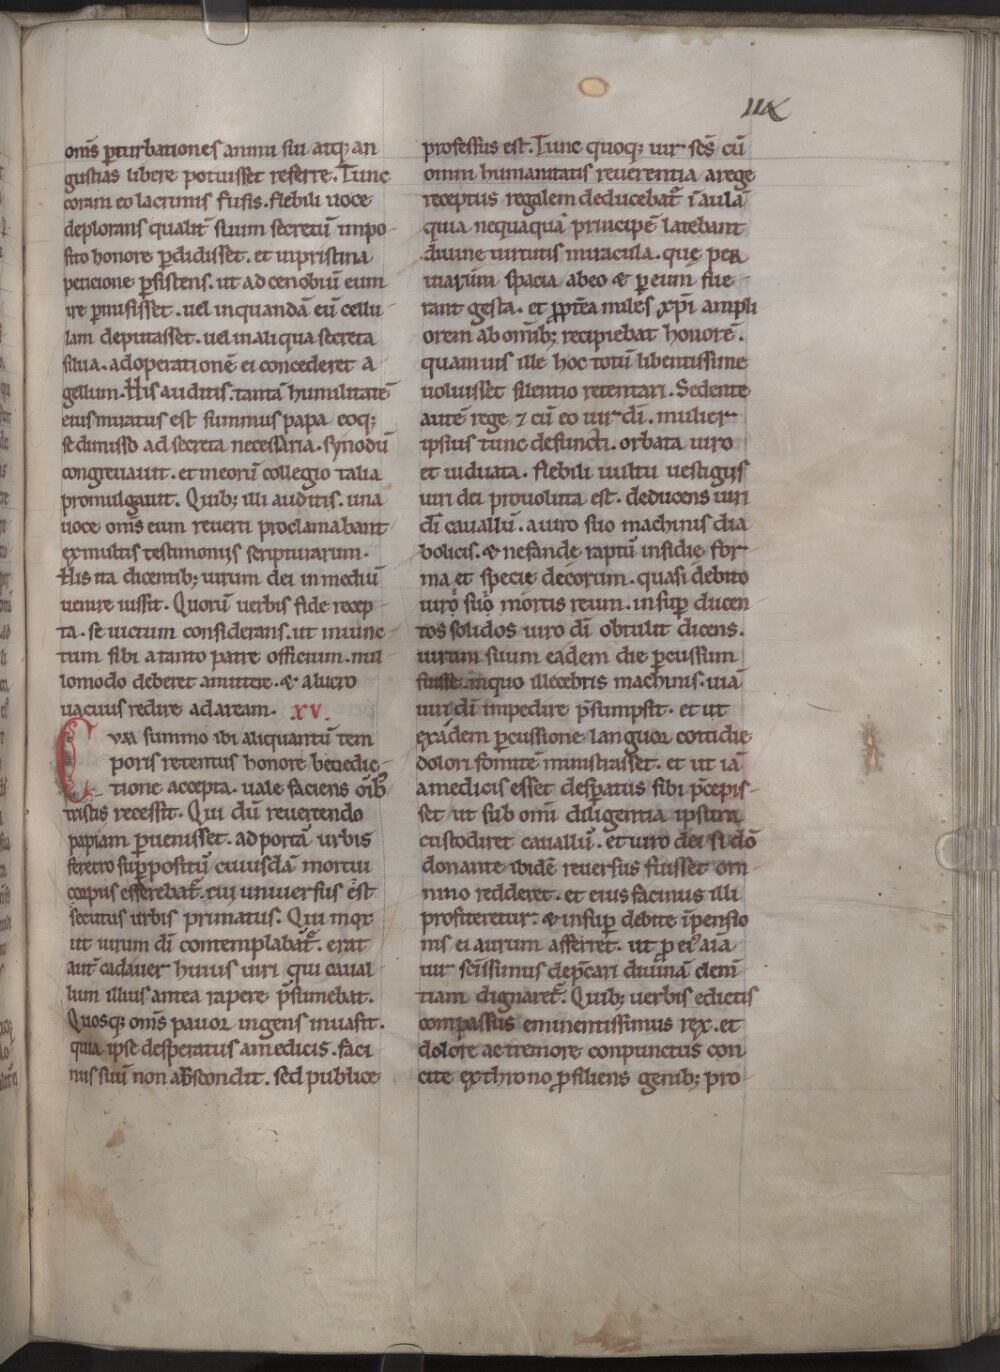 IIX
om̄s ꝑturbationes animi sui atq; an
gustias libere potuisset referre. Tunc
coram eo lacrimis fusis. flebili uoce
deplorans qualit̄ suum secretū impo
sito honore ꝑdidisset. et inpristina
peticione ꝑsistens. ut ad cenobiū eum
ire ꝑmisisset. uel inquandā eū cellu
lam deputasset. uel in aliqua secreta
silua. adoperationē ei concederet a
gellum. His auditis. tantā humilitatē
eius miratus est summus papa eoq;
se dimisso ad secreta necessaria. synodū
congregauit. et ineorū collegio talia
promulgauit. Quib; illi auditis. una
uoce om̄s eum reuerti proclamabant
exmultis testimoniis scripturarum.
His ita dicentib; uirum dei in mediū
uenire iussit. Quorū uerbis fide recep
ta. se uictum considerans. ut iniunc
tum sibi atanto patre officium. nul
lomodo deberet amittere. & alucro
uacuus redire ad aream. XV.
Cvm summo ibi aliquantū tem
poris retentus honore benedic
tione accepta. uale faciens om̄ib;
tristis recessit. Qui dū reuertendo
papiam ꝑuenisset. ad portā urbis
feretro suppositū cuiusdā mortui
corpus efferebat̄. cui uniuersus ēst
secutus urbis primatus. Qui mox
ut uirum dī contemplabat̄. erat
aut̄ cadauer huius uiri qui caual
lum illius antea rapere p̄sumebat.
Quosq; om̄s pauor ingens inuasit.
quia ipse desperatus amedicis. faci
nus suū non abscondit. sed publice
professus est. Tunc quoq; uir sc̄s cū
omni humanitatis reuerentia arege
receptus regalem deducebat̄ ī aulā
quia nequaquā principē latebant
diuine uirtutis miracula. que per
uiarum spacia ab eo & ꝑ eum fue
rant gesta. et ꝓpt̄ea miles xp̄i ampli
orem ab om̄ib; recipiebat honorē.
quamuis ille hoc totū libentissime
uoluisset silentio retentari. Sedente
autē rege ⁊ cū eo uir dī. mulier
ipsius tunc defuncti. orbata uiro
et uiduata. flebili uultu uestigiis
uiri dei prouoluta est. deducens uiri
dī cauallū. auiro suo machinis dia
bolicis. & nefande raptū insidie for
ma et specie decorum. quasi debito
uiro suo mortis reum. insuꝑ ducen
tos solidos uiro dī obtulit dicens.
uirum suum eadem die ꝑcussum
fuisse. inquo illecebris machinis. uiā
uiri dī impedire p̄sumpsit. et ut
exadem ꝑcussione languor cottidie
dolori fomitē ministrasset. et ut iā
amedicis esset desperatus sibi p̄cepis
set ut sub omī diligentia ipsum
custodiret cauallū. et uiro dei si dō
donante ibidē reuersus fuisset om
nino redderet. et eius facinus illi
profiteretur. & insuꝑ debite īpensio
nis ei aurum afferret. ut ꝓ ei' aīa
uir sc̄issimus dep̄cari diuinā clem̄
tiam dignaret̄. Quib; uerbis edictis
compassus eminentissimus rex. et
dolore ac tremore conpunctus con
cite exthrono ꝓsiliens genib; pro